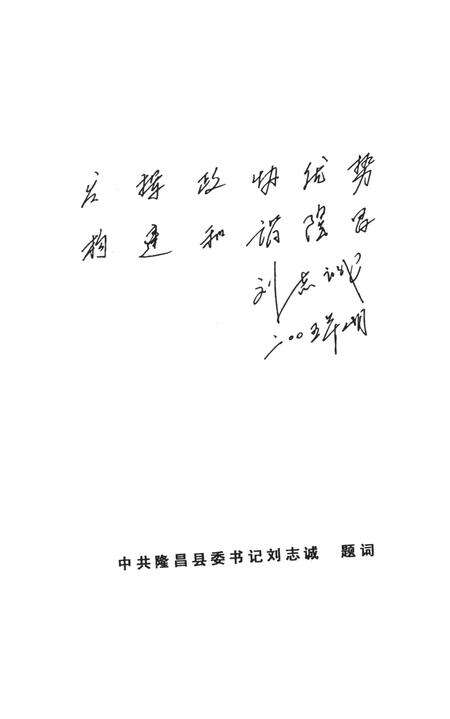 发挥政协优势
构建和谐隆昌
刘志诚
二00五年二月
中共隆昌县委书记刘志诚 题词